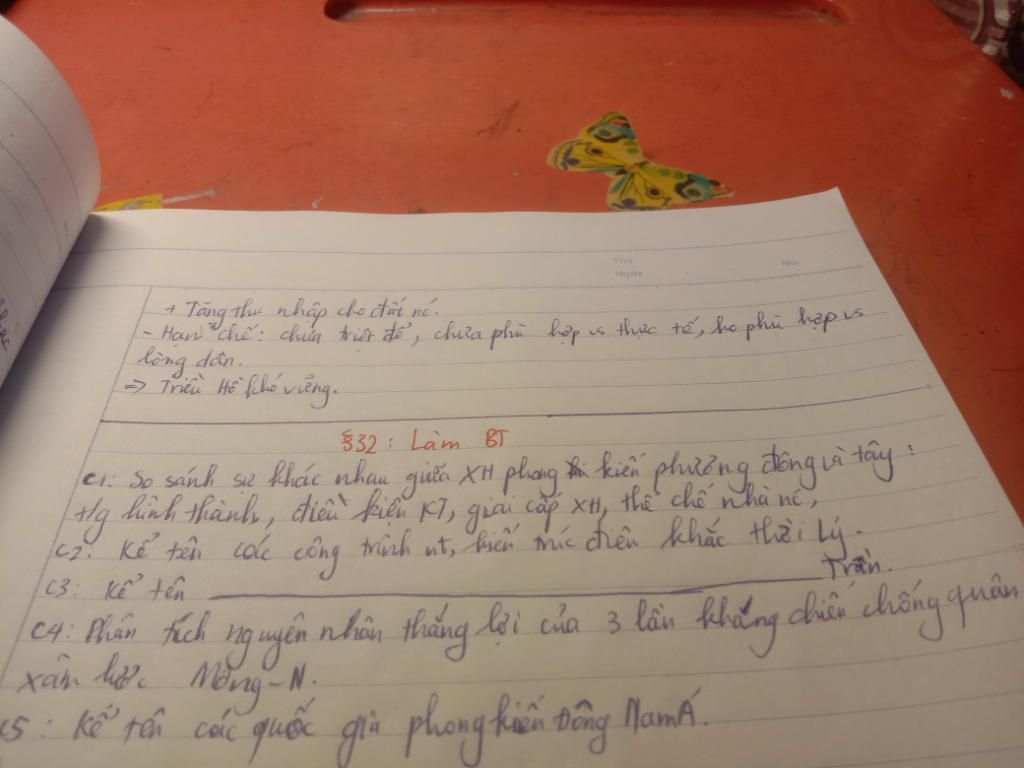 Thứ
Ngày
No.
+ Tăng thu nhập cho đất nc.
- Hạn chế: chưa triệt để, chưa phù hợp vs thực tế, ko phù hợp vs
lòng dân.
=> Triều Hồ khó vững.
§32: Làm BT
C1: So sánh sự khác nhau giữa XH phong kiến phương đông và tây:
t/g hình thành, điều kiện KT, giai cấp XH, thể chế nhà nc,
C2: Kể tên các công trình nt, kiến trúc điêu khắc thời Lý.
C3: Kể tên ______ Trần.
C4: Phân tích nguyên nhân thắng lợi của 3 lần kháng chiến chống quân
xâm lược Mông-N.
C5: Kể tên các quốc gia phong kiến Đông Nam Á.